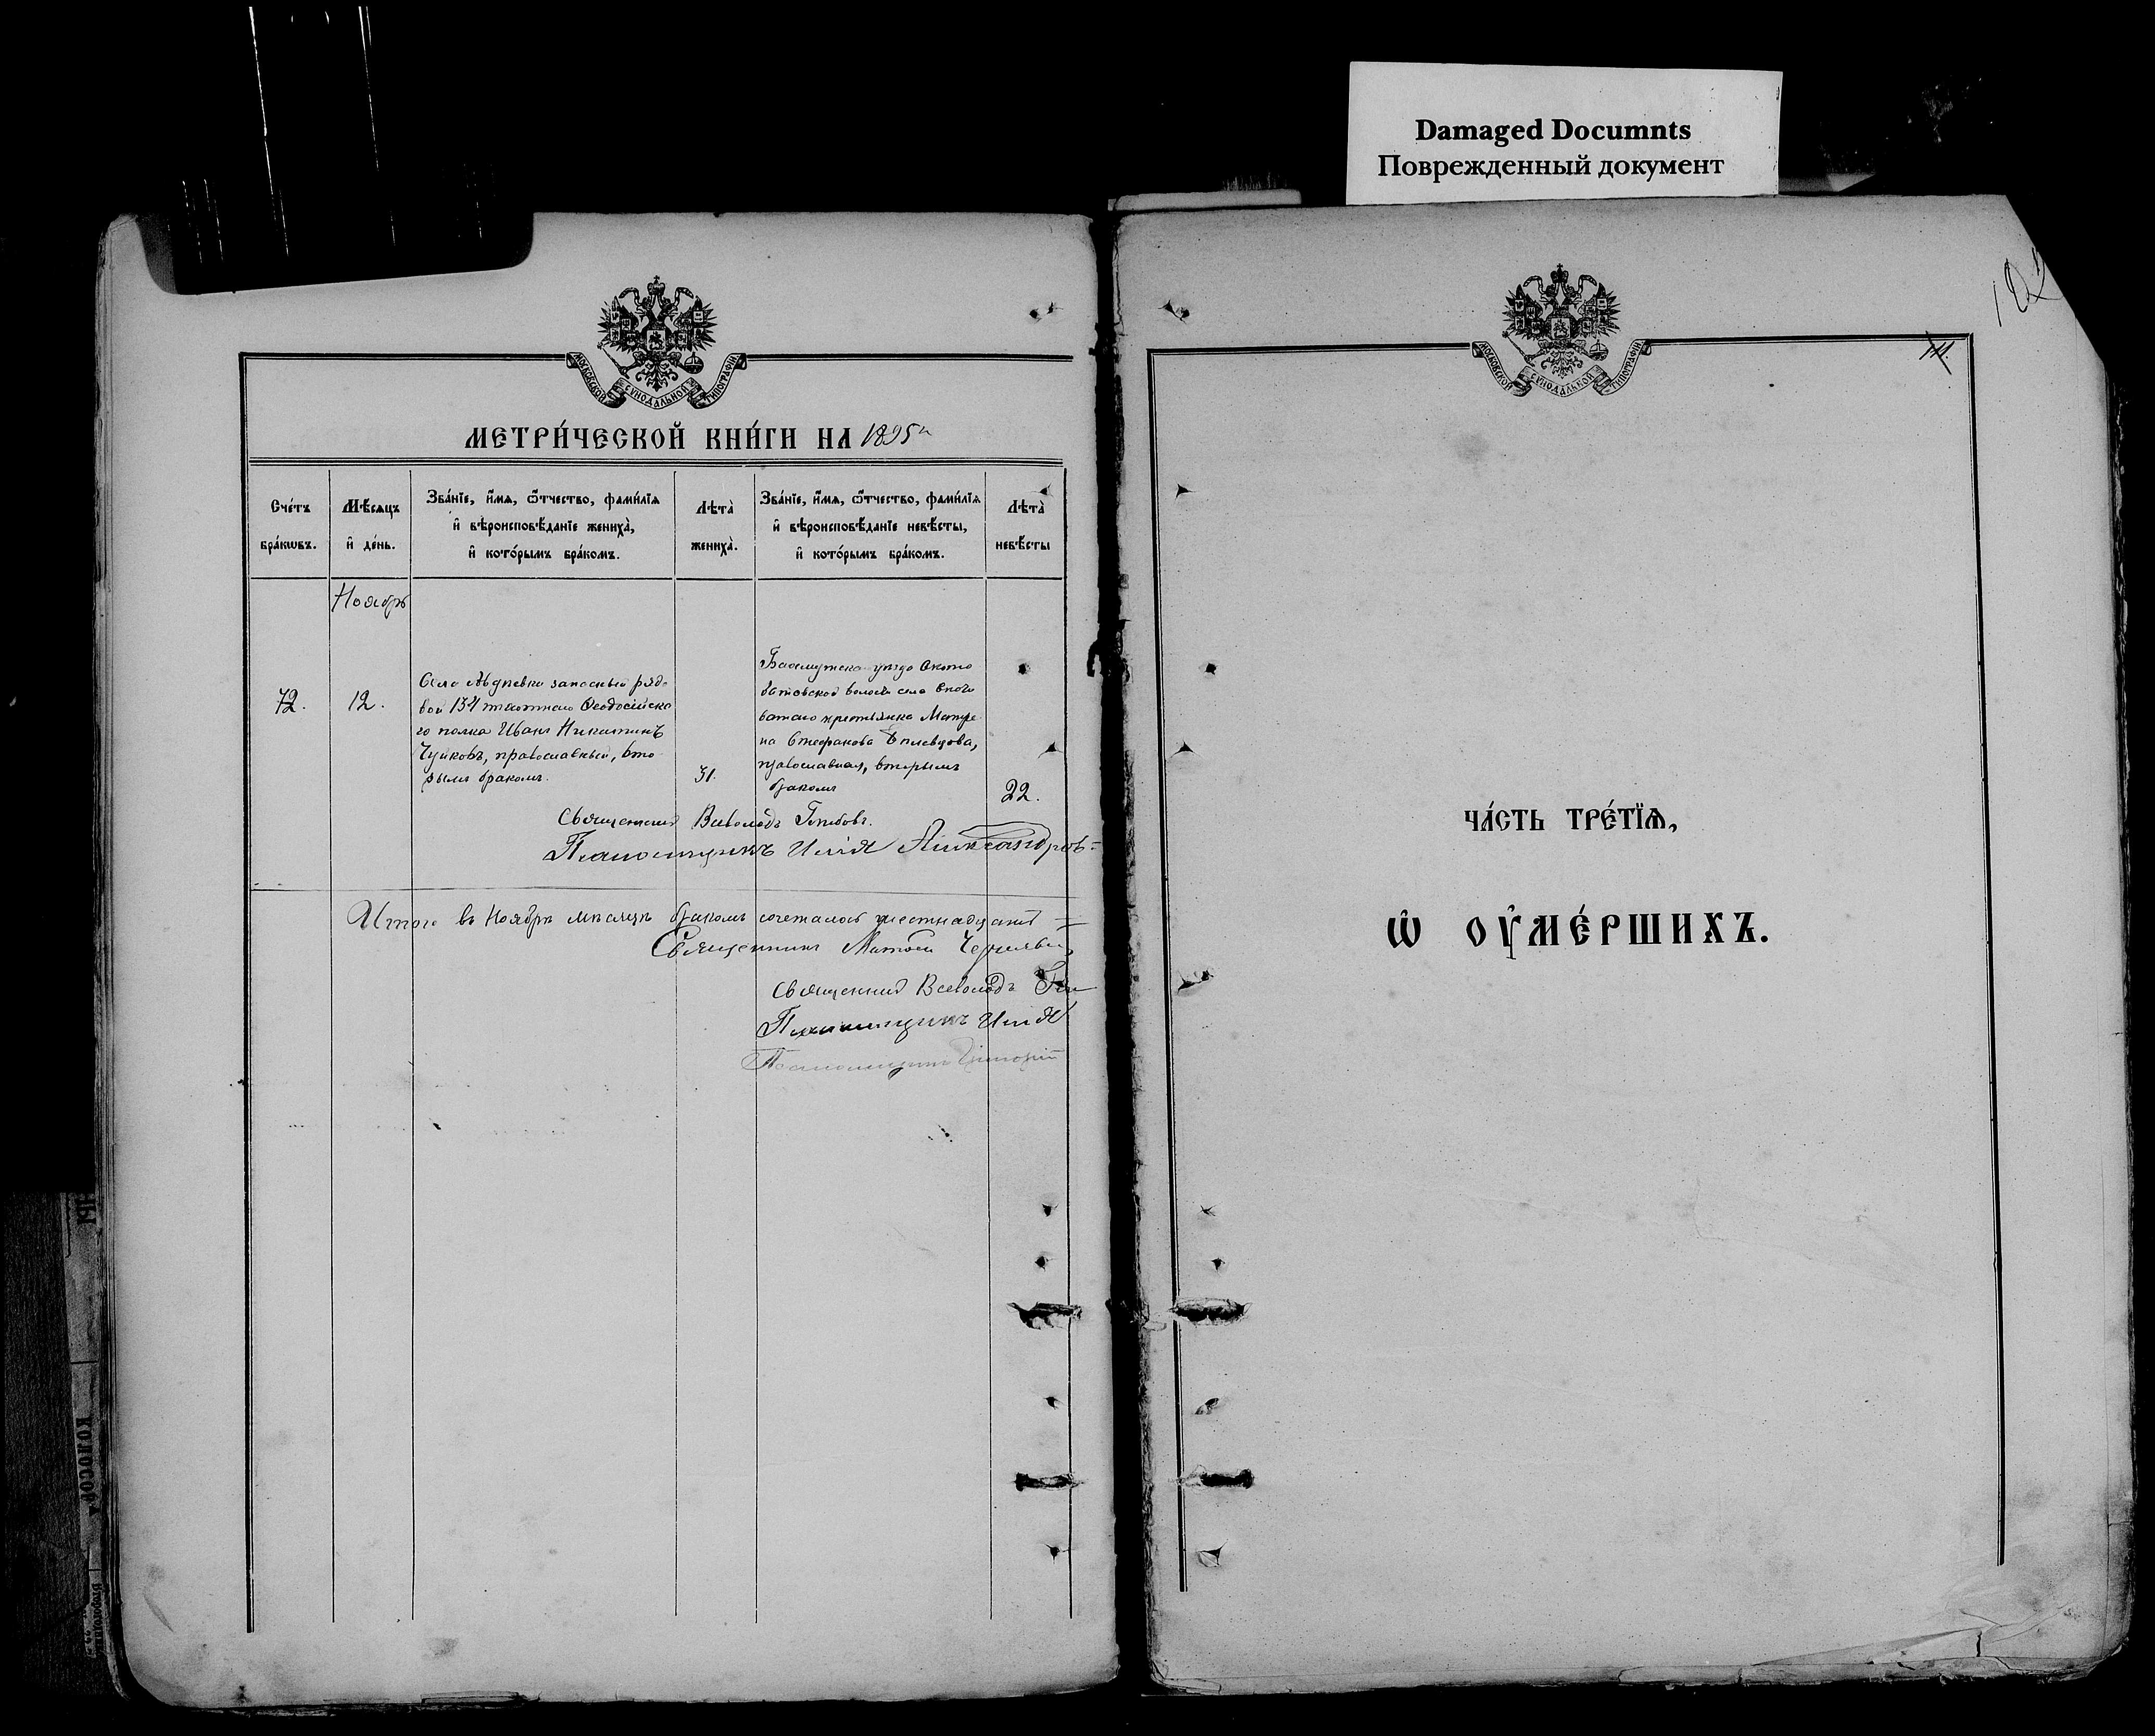 Damaged Documnts
Поврежденный документ
МОСКОВСКОЙ СУНОДАЛЬНОЙ ТИПОГРАФІИ
МЕТРИ́ЧЕСКОЙ КНИ́ГИ НА 1895
Сче́тъ бра́кѡвъ.
Мѣ́сяцъ и҆ де́нь.
Зва́нїе, и҆́мѧ, ѻ҆́тчество, фами́лїѧ и҆ вѣроисповѣ́данїе жениха̀, и҆ кото́рымъ бра́комъ.
Лѣта̀ жениха̀.
Зва́нїе, и҆́мѧ, ѻ҆́тчество, фами́лїѧ и҆ вѣроисповѣ́данїе невѣ́сты, и҆ кото́рымъ бра́комъ.
Лѣта̀ невѣ́сты
Ноябрь
72.
12.
Села запасный рядо
вой 134 пѣхотнаго Ѳеодосійска
го полка Иванъ Никитинъ
Чуйковъ, православный, вто
рымъ бракомъ.
31.
Бахмутскаго уѣзда
волости села
ватаго крестьянка Матре
на Стефанова
православная, вторымъ
бракомъ
22.
Священникъ Всеволодъ
Псаломщикъ Илія Александровъ
Итого въ Ноябрѣ мѣсяцѣ бракомъ сочеталось шестнадцать
Священникъ Матвей
Священникъ Всеволодъ
Псаломщикъ Илія
Псаломщикъ Григорій
МОСКОВСКОЙ СУНОДАЛЬНОЙ ТИПОГРАФІИ
ЧА́СТЬ ТРЕ́ТЇѦ,
Ѡ҆ ОУ҆МЕ́РШИХЪ.